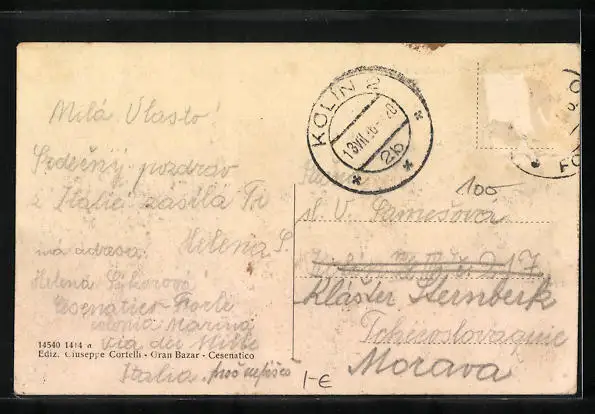 Milá Vlasto!
Srdečný pozdrav
z Italie zasílá Ti
Helena S.
má adresa:
Helena Sýkorová
Cesenatico-Forlì
colonia Marina
via dei Mille
Italia. proč nepíšeš
14540 1414
Ediz. Giuseppe Cortelli - Gran Bazar - Cesenatico
KOLÍN 2
13.VII.
2b
100
sl. V. Samešová
Klášter Sternberk
Tchécoslovaquie
Morava
1-€
FO